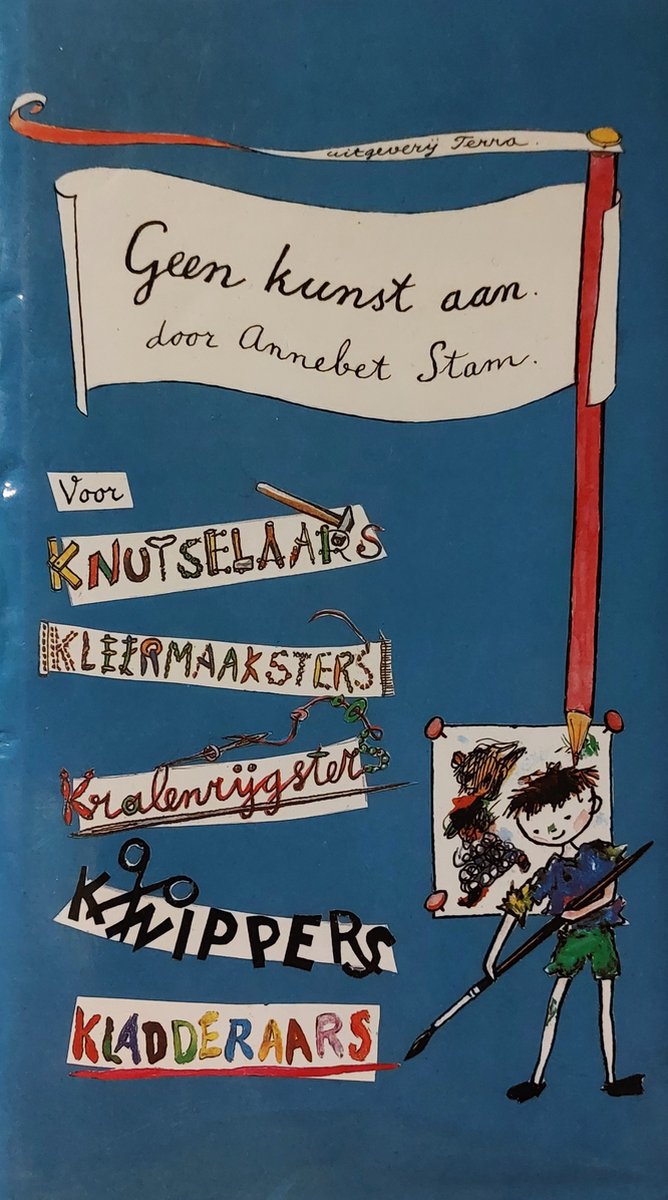 uitgeverij Terra.
Geen kunst aan.
door Annebet Stam.
Voor
KNUTSELAARS
KLEERMAAKSTERS
Kralenrijgsters
KNIPPERS
KLADDERAARS